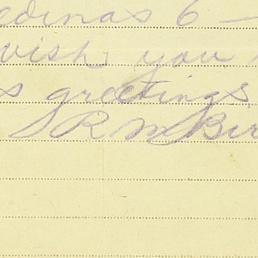 edinas 6 –
wish you
s greetings
R M Bir